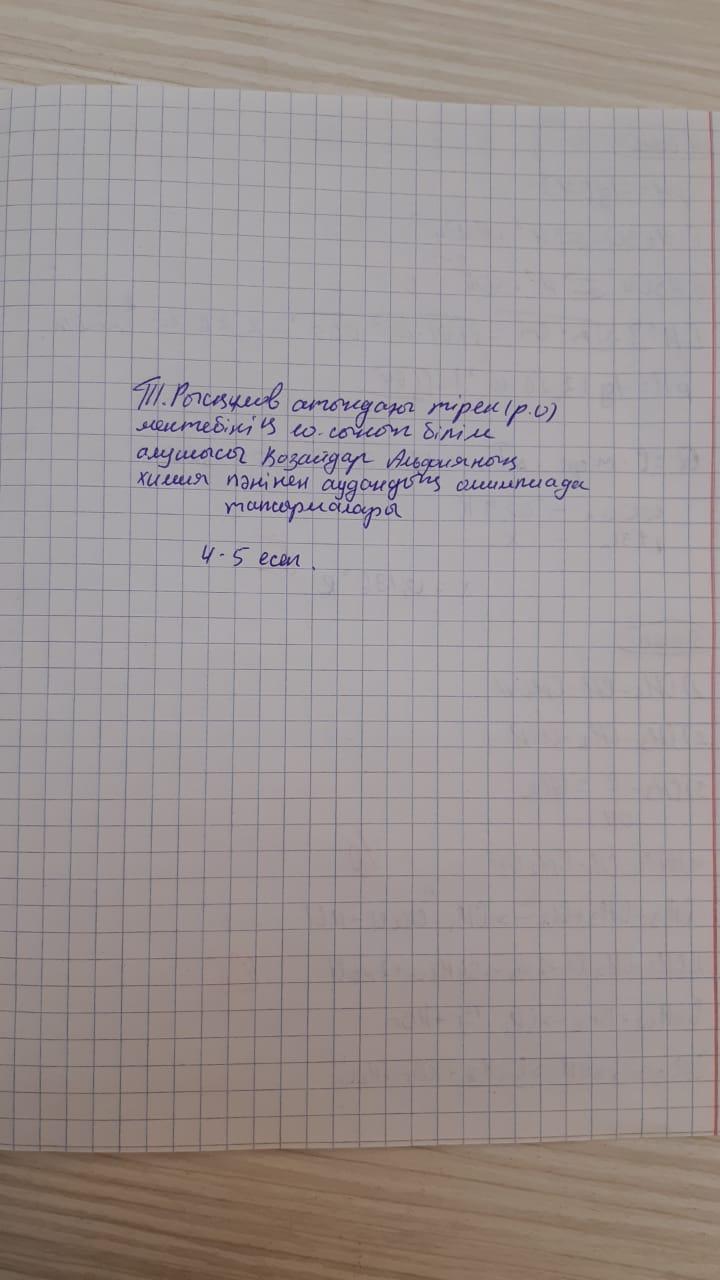 Т.Рысқұлов атындағы тірек (р.о)
мектебінің 10. сынып білім
алушысы Қозайдар Альфияның
химия пәнінен аудандық олимпиада
тапсырмалары
4-5 есеп.